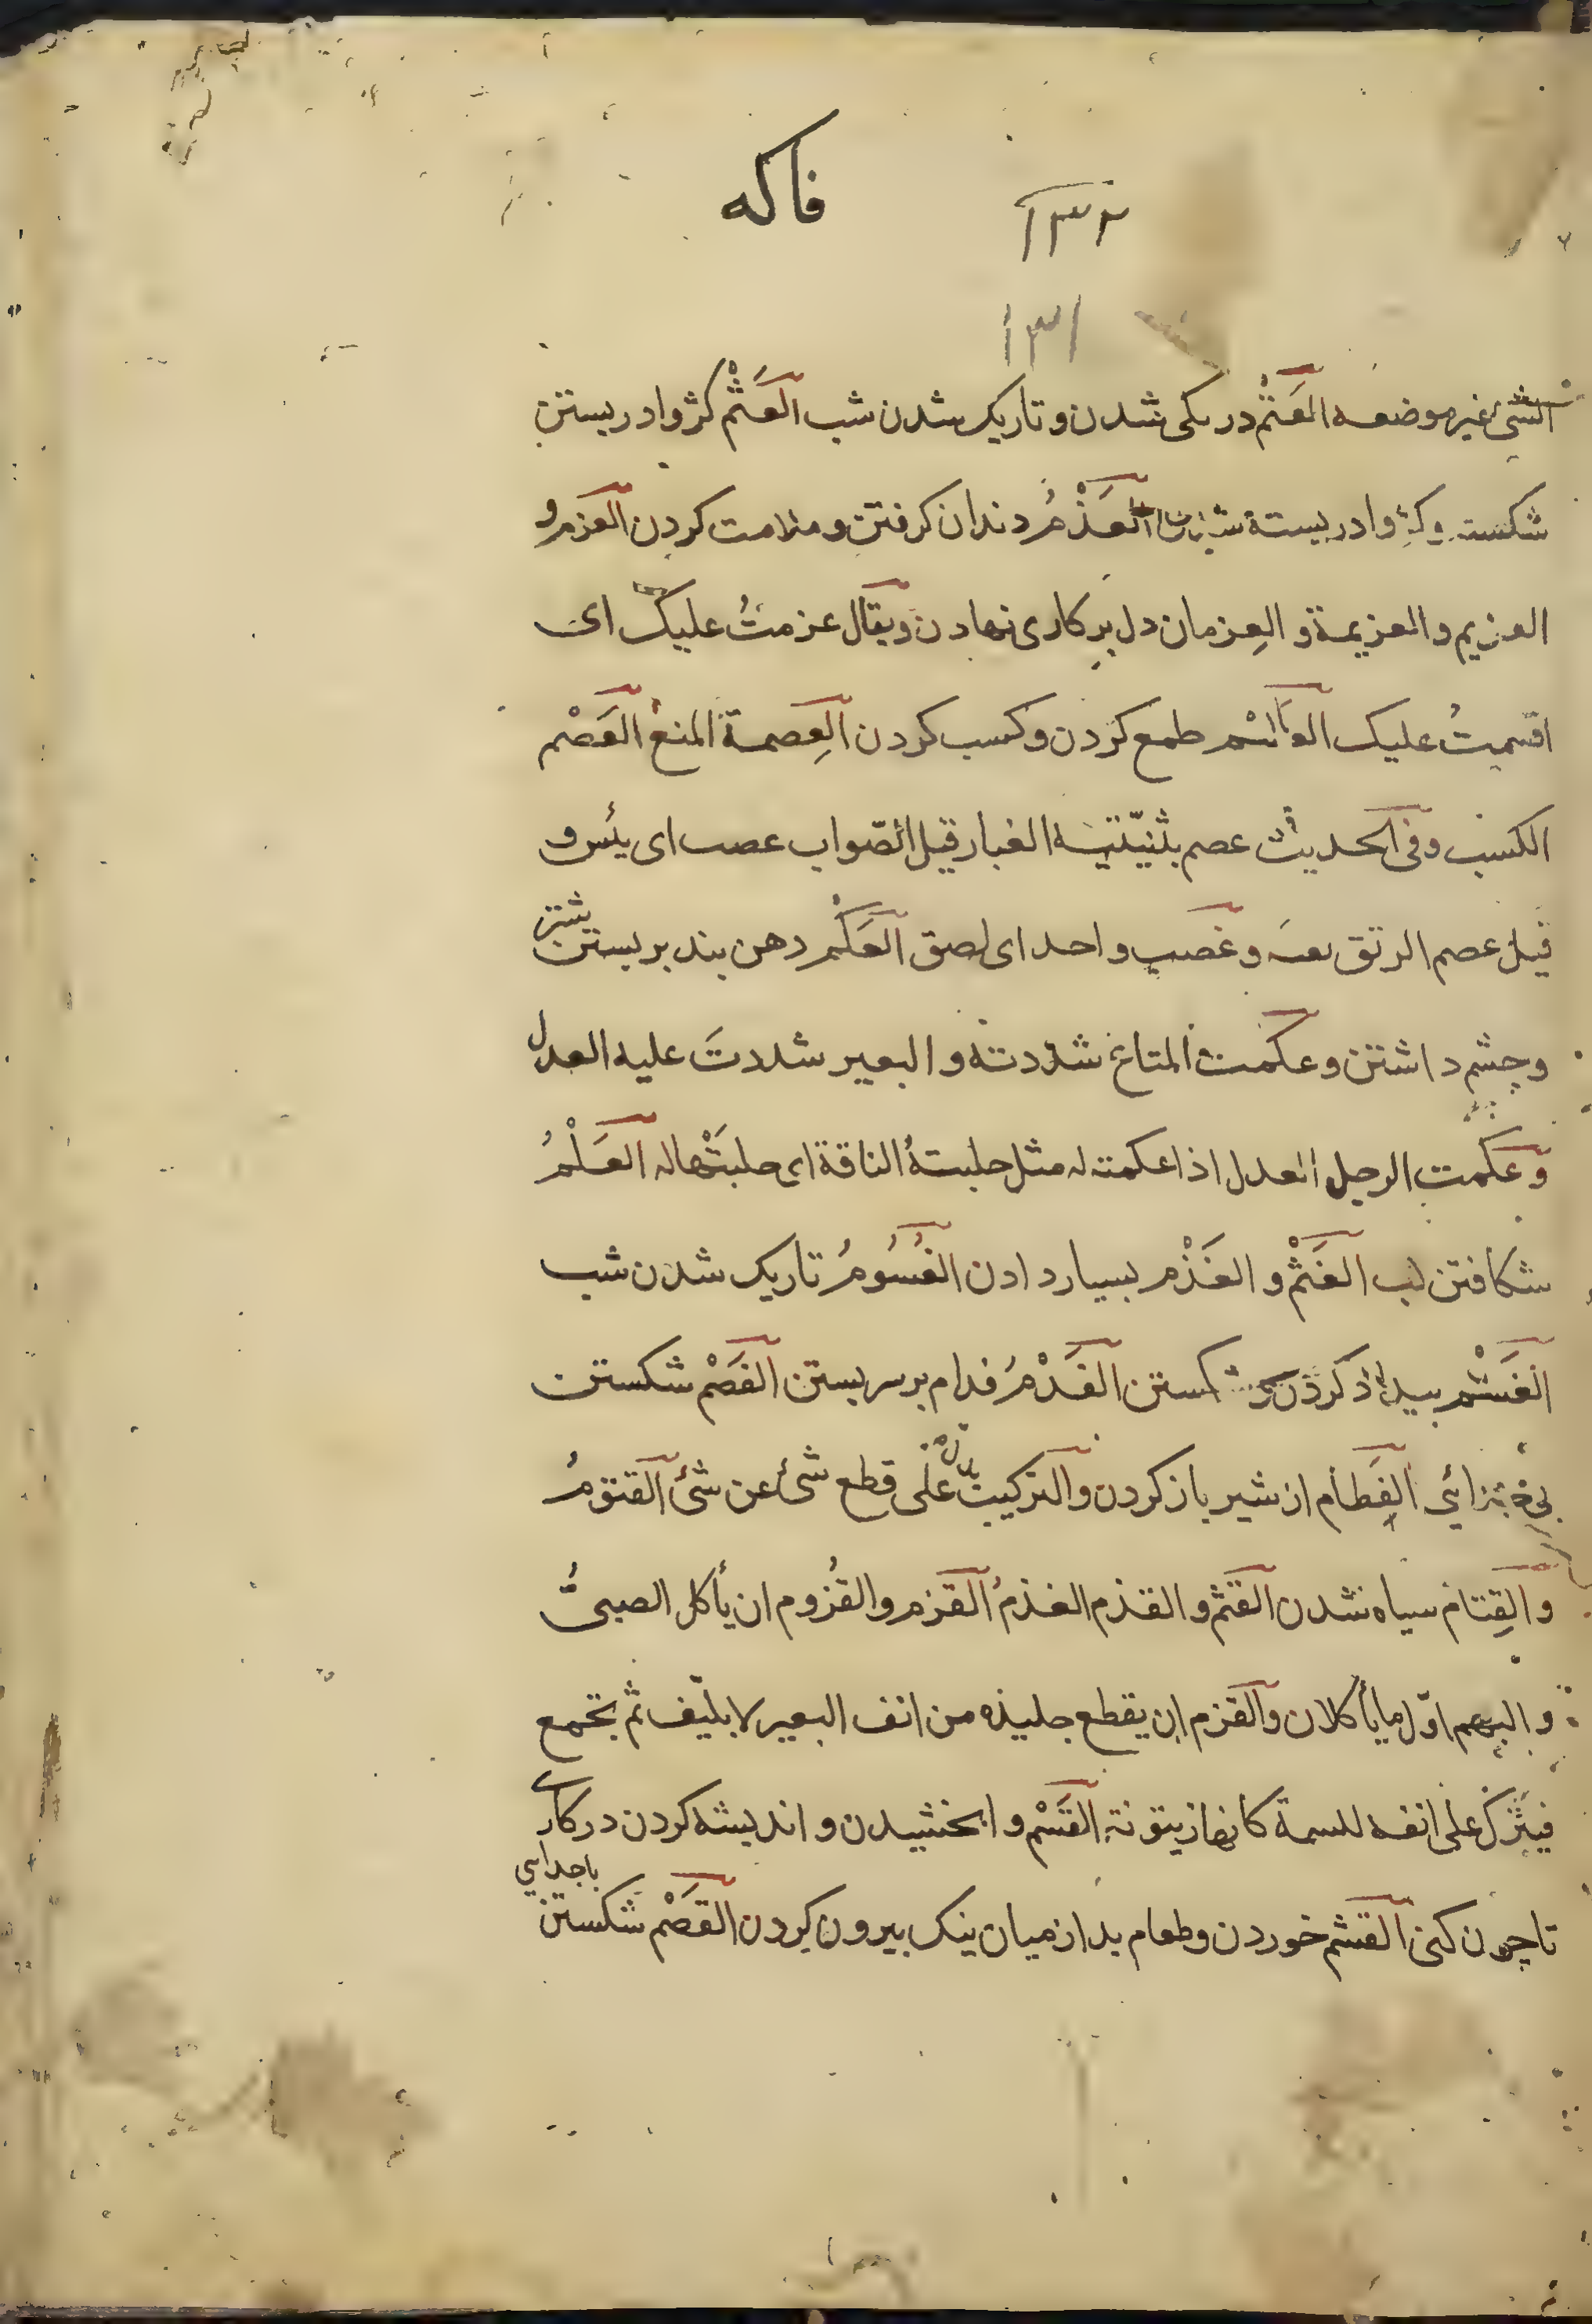 فاكه
١٣٢
١٣١
الشئ غير موضعه العَتْم درنكى شدن وتاريك شدن شب العَثْم كژ وادربستن
شكسته وكژ وادربسته شدن العَذْمُ دندان كرفتن وملامت كردن العزم و
العزيم والعزيمة والعِزمان دل بر كارى نهادن ويقال عزمتُ عليك اى
اقسمتُ عليك العَسْم طمع كردن وكسب كردن العِصمة المنع العَصْم
الكسب وفى الحديث عصم بثنيّتيه الغبار قيل الصّواب عصب اى يئس و
قيل عصم الريق بفيه وعصب واحد اى لصق العَكْم دهن بند بربستن شتر
وچشم داشتن وعكمت المتاع شددته والبعير شددتَ عليه العدل
وعكمت الرجل العدل اذا عكمته له مثل حلبتهُ الناقة اى حلبتْها له العَلْمُ
شكافتن لب الغَثْم والغَذْم بسيار دادن الغُسُومُ تاريك شدن شب
الغَشْم بيداد كردن شكستن الفَدْمُ فدام بر سر بستن الفَصْم شكستن
بى جدائى الفِطام از شير باز كردن والتركيب يدلّ على قطع شئ عن شئ القتومُ
والقِتام سياه شدن القَثْم والقذم الغذمُ القزم والقُزوم ان يأكل الصبىُّ
والبهم اوّل ما يأكلان والقزم ان يقطع جليدة من انف البعير لا يليف ثم تجمع
فيترك على انفه للسمة كانها زيتونة القَسْم وابخشيدن وانديشه كردن در كارى
تا چون كنى القشم خوردن وطعام بد از ميان نيك بيرون كردن القَصْم شكستن
باجدايى